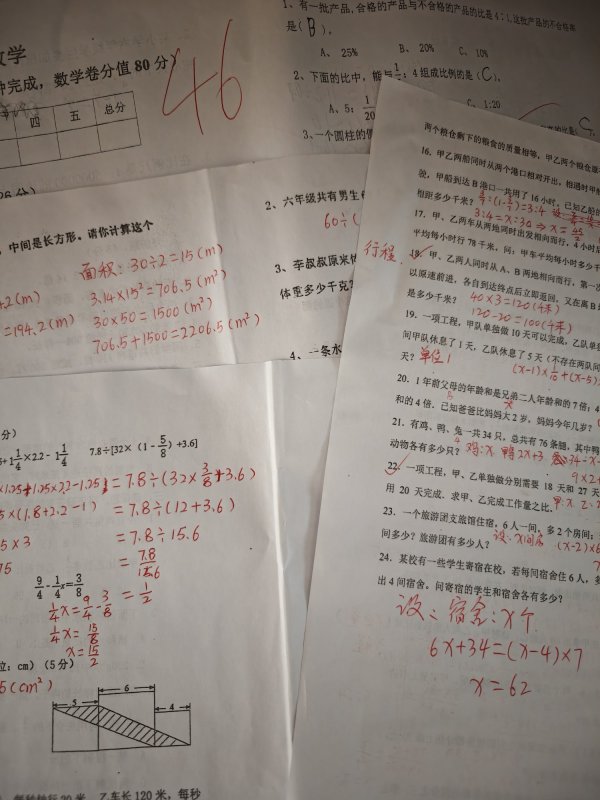 1、有一批产品,合格的产品与不合格的产品的比是4:1,这批产品的不合格率
是( B )。
A、 25% B、 20% C、 10%
2、下面的比中,能与 :4 组成比例的是( C )。
A、5: C、1:20
3、一个圆柱的
数学
钟完成,数学卷分值 80 分)
46
四 五 总分
中间是长方形。请你计算这个
面积:30÷2=15(m)
3.14×15²=706.5(m²)
=194.2(m) 30×50=1500(m²)
706.5+1500=2206.5(m²)
2、六年级共有男生
60÷(
3、李叔叔原来
体重多少千克?
4、一条水
两个粮仓剩下的粮食的质量相等,甲乙两个粮仓
16. 甲乙两船同时从两个港口相对开出,相遇时甲
甲船到达B港口一共用了 16 小时,已知乙船
相距多少千米?
3:4=x:30⇒x=
17. 甲、乙两车从两地同时出发相向而行,4小时
平均每小时行 78 千米,问:甲车平均每小时多少千
行程
18. 甲、乙两人同时从 A、B 两地相向而行,第一次
以原速前进,各自到达终点后立即返回,又在离B
是多少千米? 40×3=120(千米)
120-20=100(千米)
19. 一项工程,甲队单独做 10 天可以完成,乙队单独
间甲队休息了 1 天,乙队休息了 5 天(不存在两队同
天? 单位1 (x-1)×1/10+(x-5)
20. 1 年前父母的年龄和是兄弟二人年龄和的 7 倍;4
和的 4 倍. 已知爸爸比妈妈大 2 岁,妈妈今年几岁?
21. 有鸡、鸭、兔一共 34 只,总共有 76 条腿,其中鸭
动物各有多少只? 鸡:x 鸭2x+3 34-x-
22. 一项工程,甲、乙单独做分别需要 18 天和 27 天
用 20 天完成. 求甲、乙完成工作量之比. 甲:x
23. 一个旅游团支旅馆住宿,6 人一间,多 2 个房间;
间多少?旅游团有多少人? 设:x间房 (x-2)×6
24. 某校有一些学生寄宿在校,若每间宿舍住 6 人,多
出 4 间宿舍。问寄宿的学生和宿舍各有多少?
设:宿舍:x个
6x+34=(x-4)×7
x=62
分)
1 1/4×2.2-1 1/4 7.8÷[32×(1-5/8)+3.6]
×1.25+1.25×2.2-1.25 =7.8÷(32×3/8+3.6)
×(1.8+2.2-1) =7.8÷(12+3.6)
×3 =7.8÷15.6
75 =7.8/15.6
9/4-1/4x=3/8 =1/2
1/4x=9/4-3/8
1/4x=15/8
x=15/2
位:cm)(5 分)
5(cm²)
6
5 4
乙车长 120 米,每秒